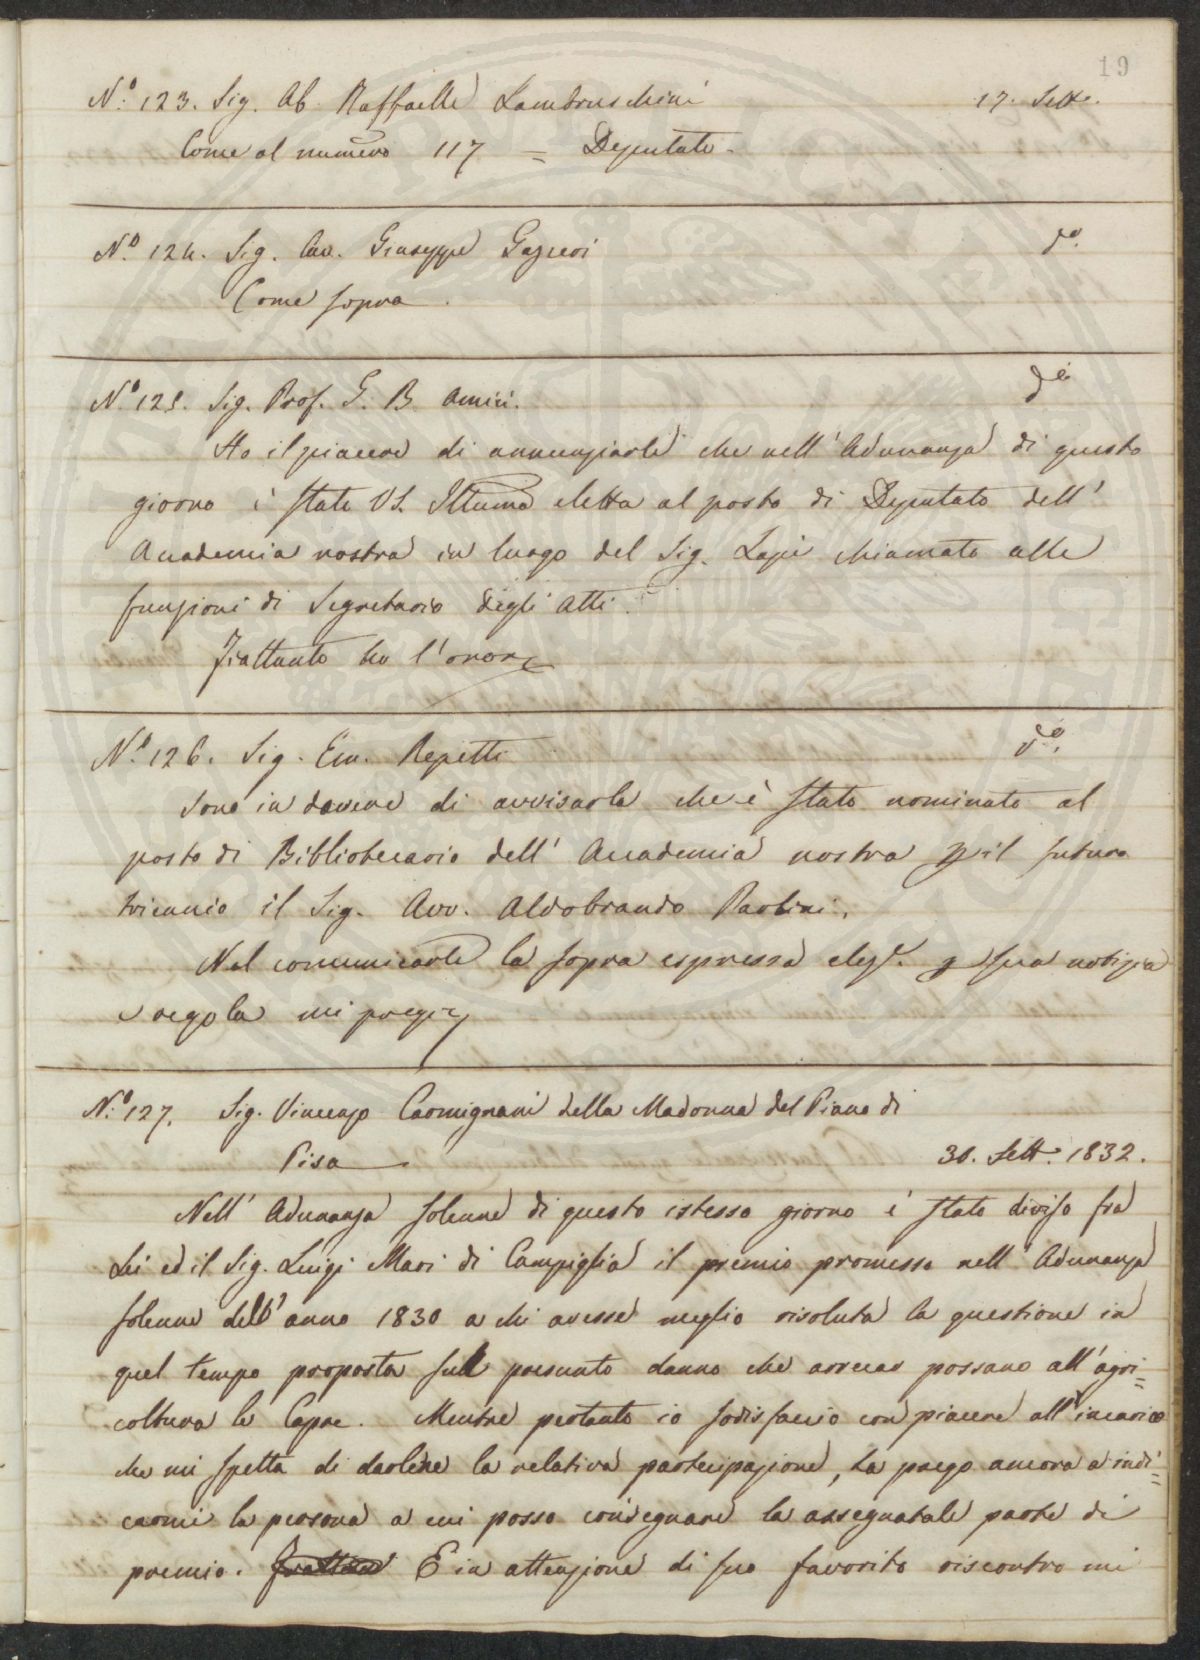 19
N.o 123. Sig. Ab. Raffaelle Lambruschini 17. Sett.
Come al numero 117 = Deputato.
N.o 124. Sig. Cav. Giuseppe Gazzeri do.
Come sopra.
N.o 125. Sig. Prof. G. B. Amici. do
Ho il piacere di annunziarle che nell' Adunanza di questo
giorno è stato VS. Illuma eletta al posto di Deputato dell'
Accademia nostra in luogo del Sig. Lapi chiamato alle
funzioni di Segretario degli Atti.
Frattanto ho l'onore
N.o 126. Sig. Em. Repetti do.
Sono in dovere di avvisarla che è stato nominato al
posto di Bibliotecario dell' Accademia nostra p il futuro
triennio il Sig. Avv. Aldobrando Paolini.
Nel comunicarle la sopra espressa elez.e p sua notizia
e regola mi pregio
N.o 127. Sig. Vincenzo Carmignani della Madonna del Piano di
Pisa 30. Sett. 1832.
Nell' Adunanza solenne di questo istesso giorno è stato diviso fra
Lei ed il Sig. Luigi Mari di Campiglia il premio promesso nell' Adunanza
solenne dell' anno 1830 a chi avesse meglio risoluta la questione in
quel tempo proposta sul presunto danno che arrecar possano all' agri=
coltura le Capre. Mentre pertanto io sodisfaccio con piacere all' incarico
che mi spetta di darlene la relativa partecipazione, La prego ancora a indi=
carmi la persona a cui posso consegnare la assegnatale parte di
premio. E in attenzione di suo favorito riscontro mi